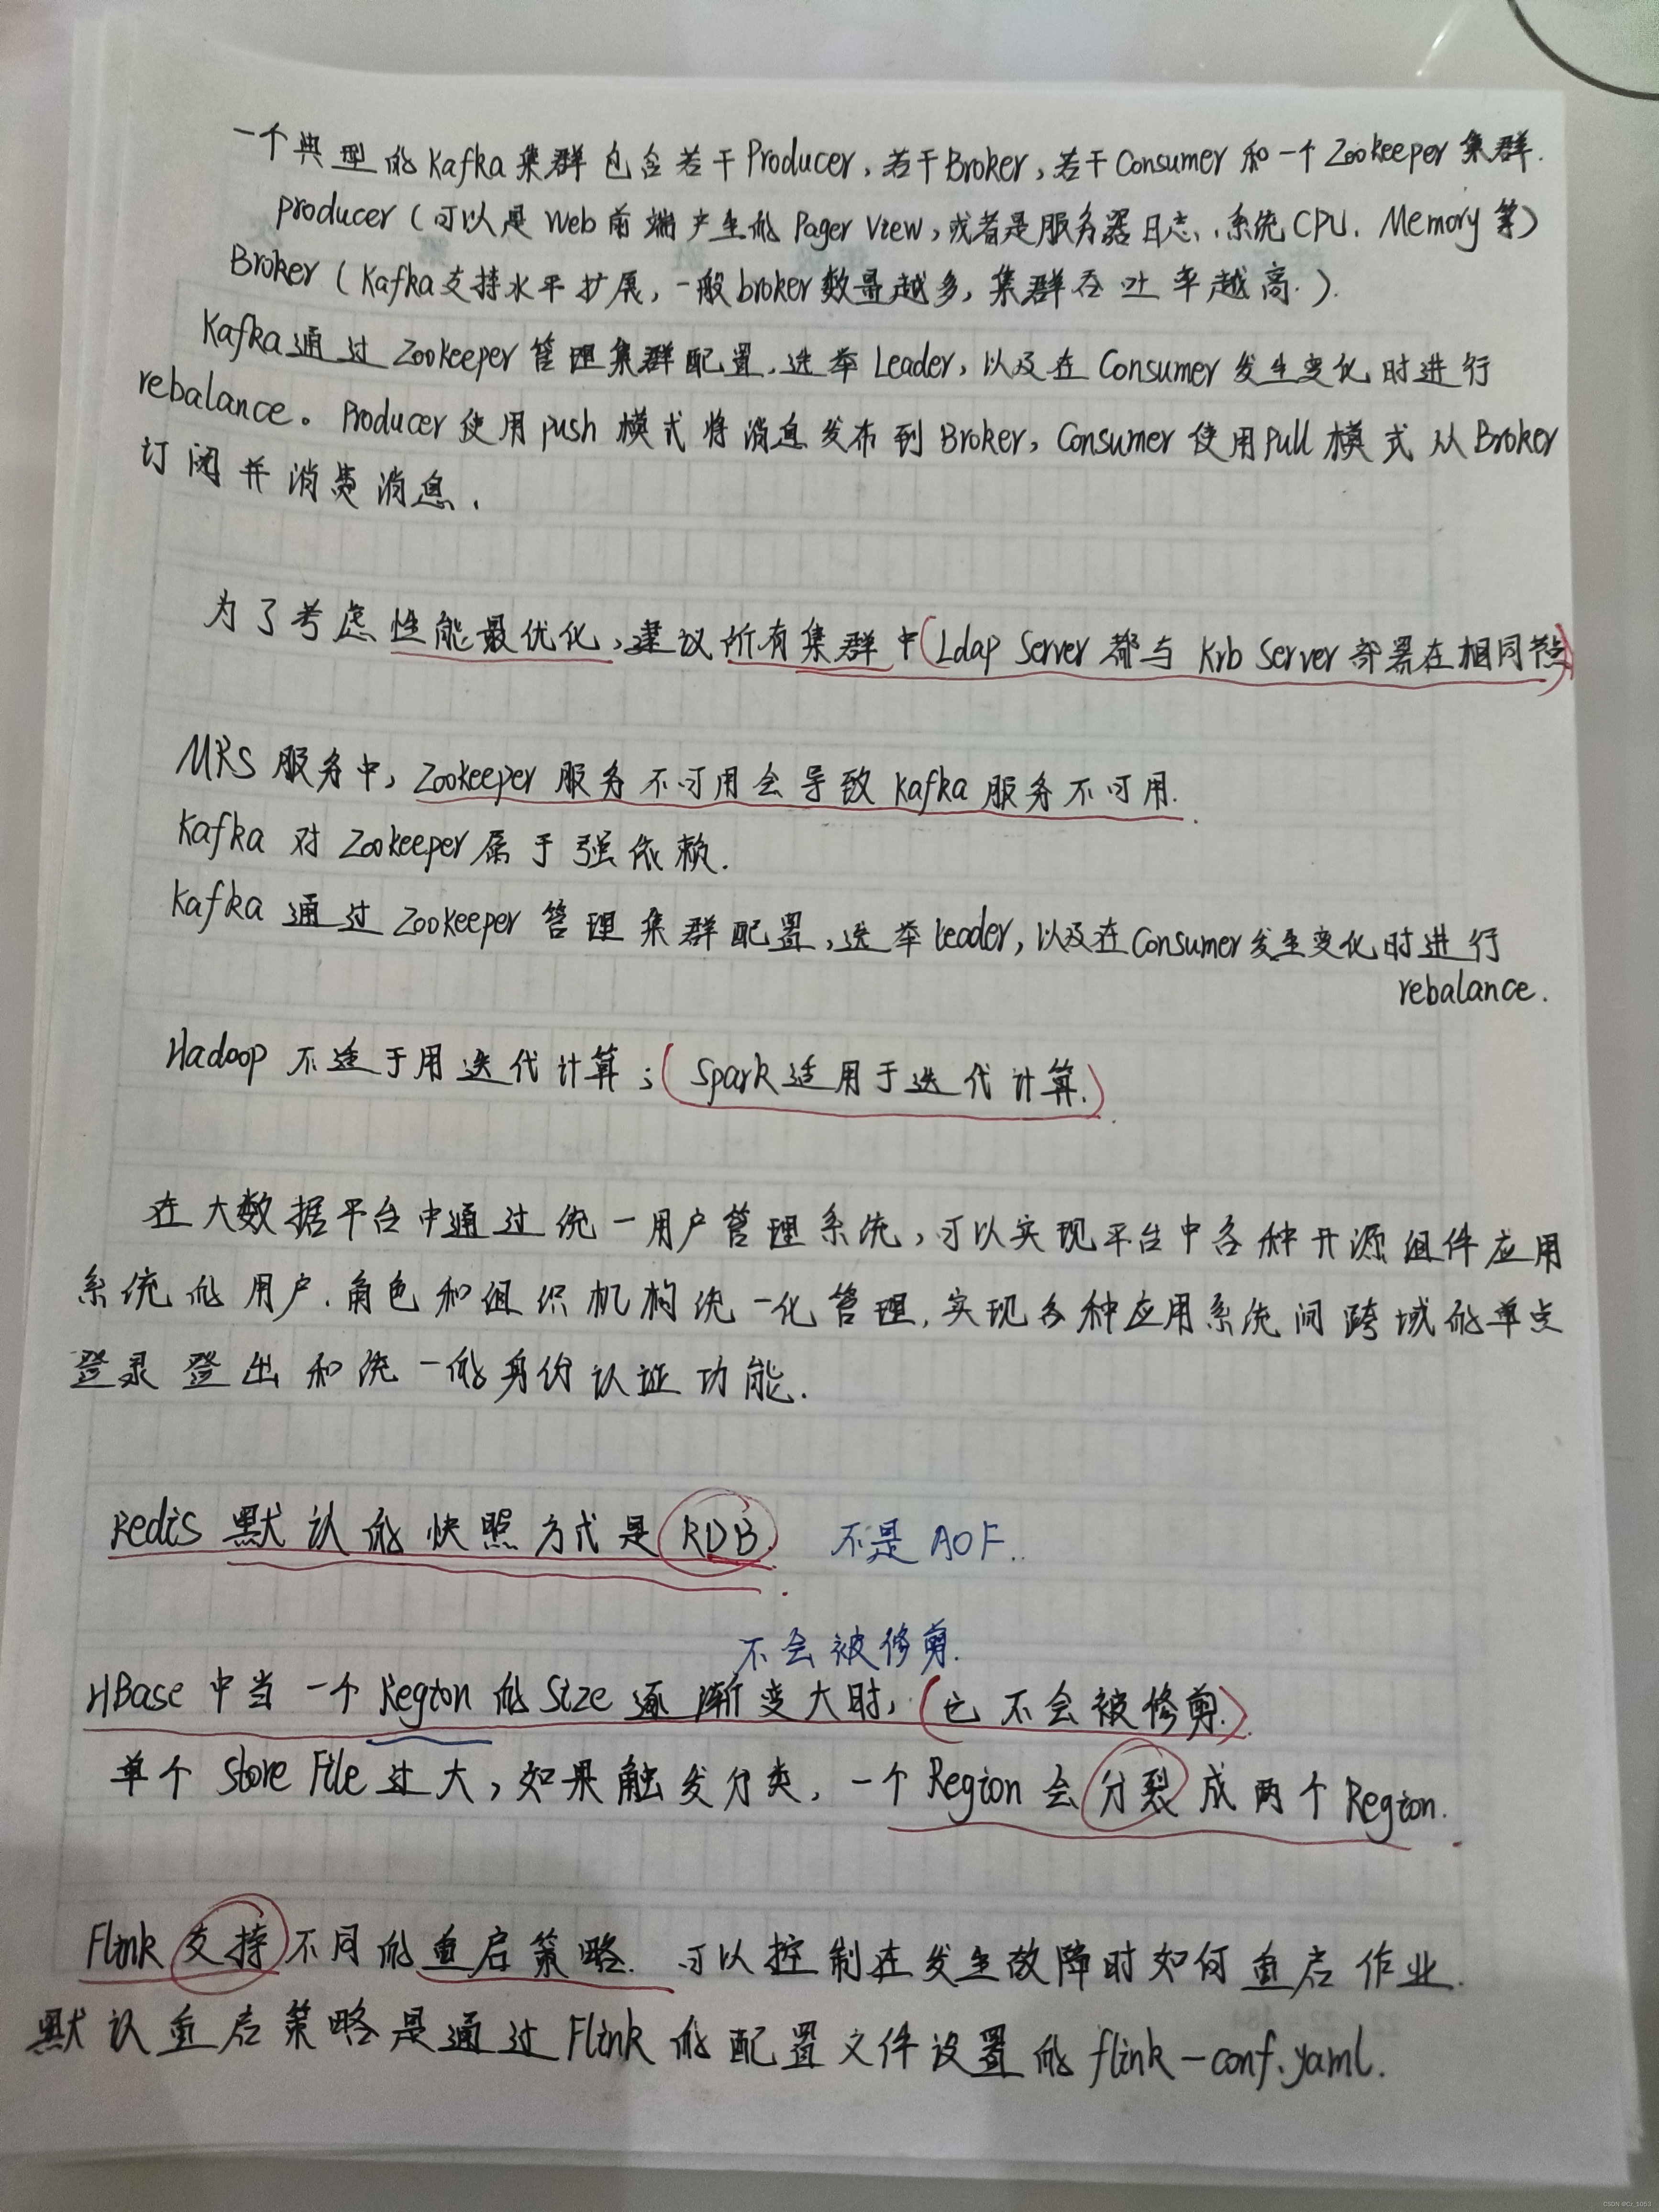 一个典型的Kafka集群包含若干Producer,若干Broker,若干Consumer和一个Zookeeper集群.
producer(可以是Web前端产生的Pager View,或者是服务器日志、系统CPU、Memory等)
Broker(Kafka支持水平扩展,一般broker数量越多,集群吞吐率越高.).
Kafka通过Zookeeper管理集群配置,选举Leader,以及在Consumer发生变化时进行
rebalance。Producer使用push模式将消息发布到Broker,Consumer使用Pull模式从Broker
订阅并消费消息.
为了考虑性能最优化,建议所有集群中(Ldap Server都与Krb Server部署在相同节点)
MRS服务中,Zookeeper服务不可用会导致Kafka服务不可用.
Kafka对Zookeeper属于强依赖.
Kafka通过Zookeeper管理集群配置,选举Leader,以及在Consumer发生变化时进行
rebalance.
Hadoop不适于用迭代计算;(Spark适用于迭代计算.).
在大数据平台中通过统一用户管理系统,可以实现平台中各种开源组件应用
系统的用户、角色和组织机构统一化管理,实现各种应用系统间跨域的单点
登录登出和统一的身份认证功能.
Redis默认的快照方式是RDB. 不是AOF..
不会被修剪.
HBase中当一个Region的Size逐渐变大时,(它不会被修剪.).
单个Store File过大,如果触发分类,一个Region会分裂成两个Region.
Flink支持不同的重启策略.可以控制在发生故障时如何重启作业.
默认重启策略是通过Flink的配置文件设置的flink-conf.yaml.